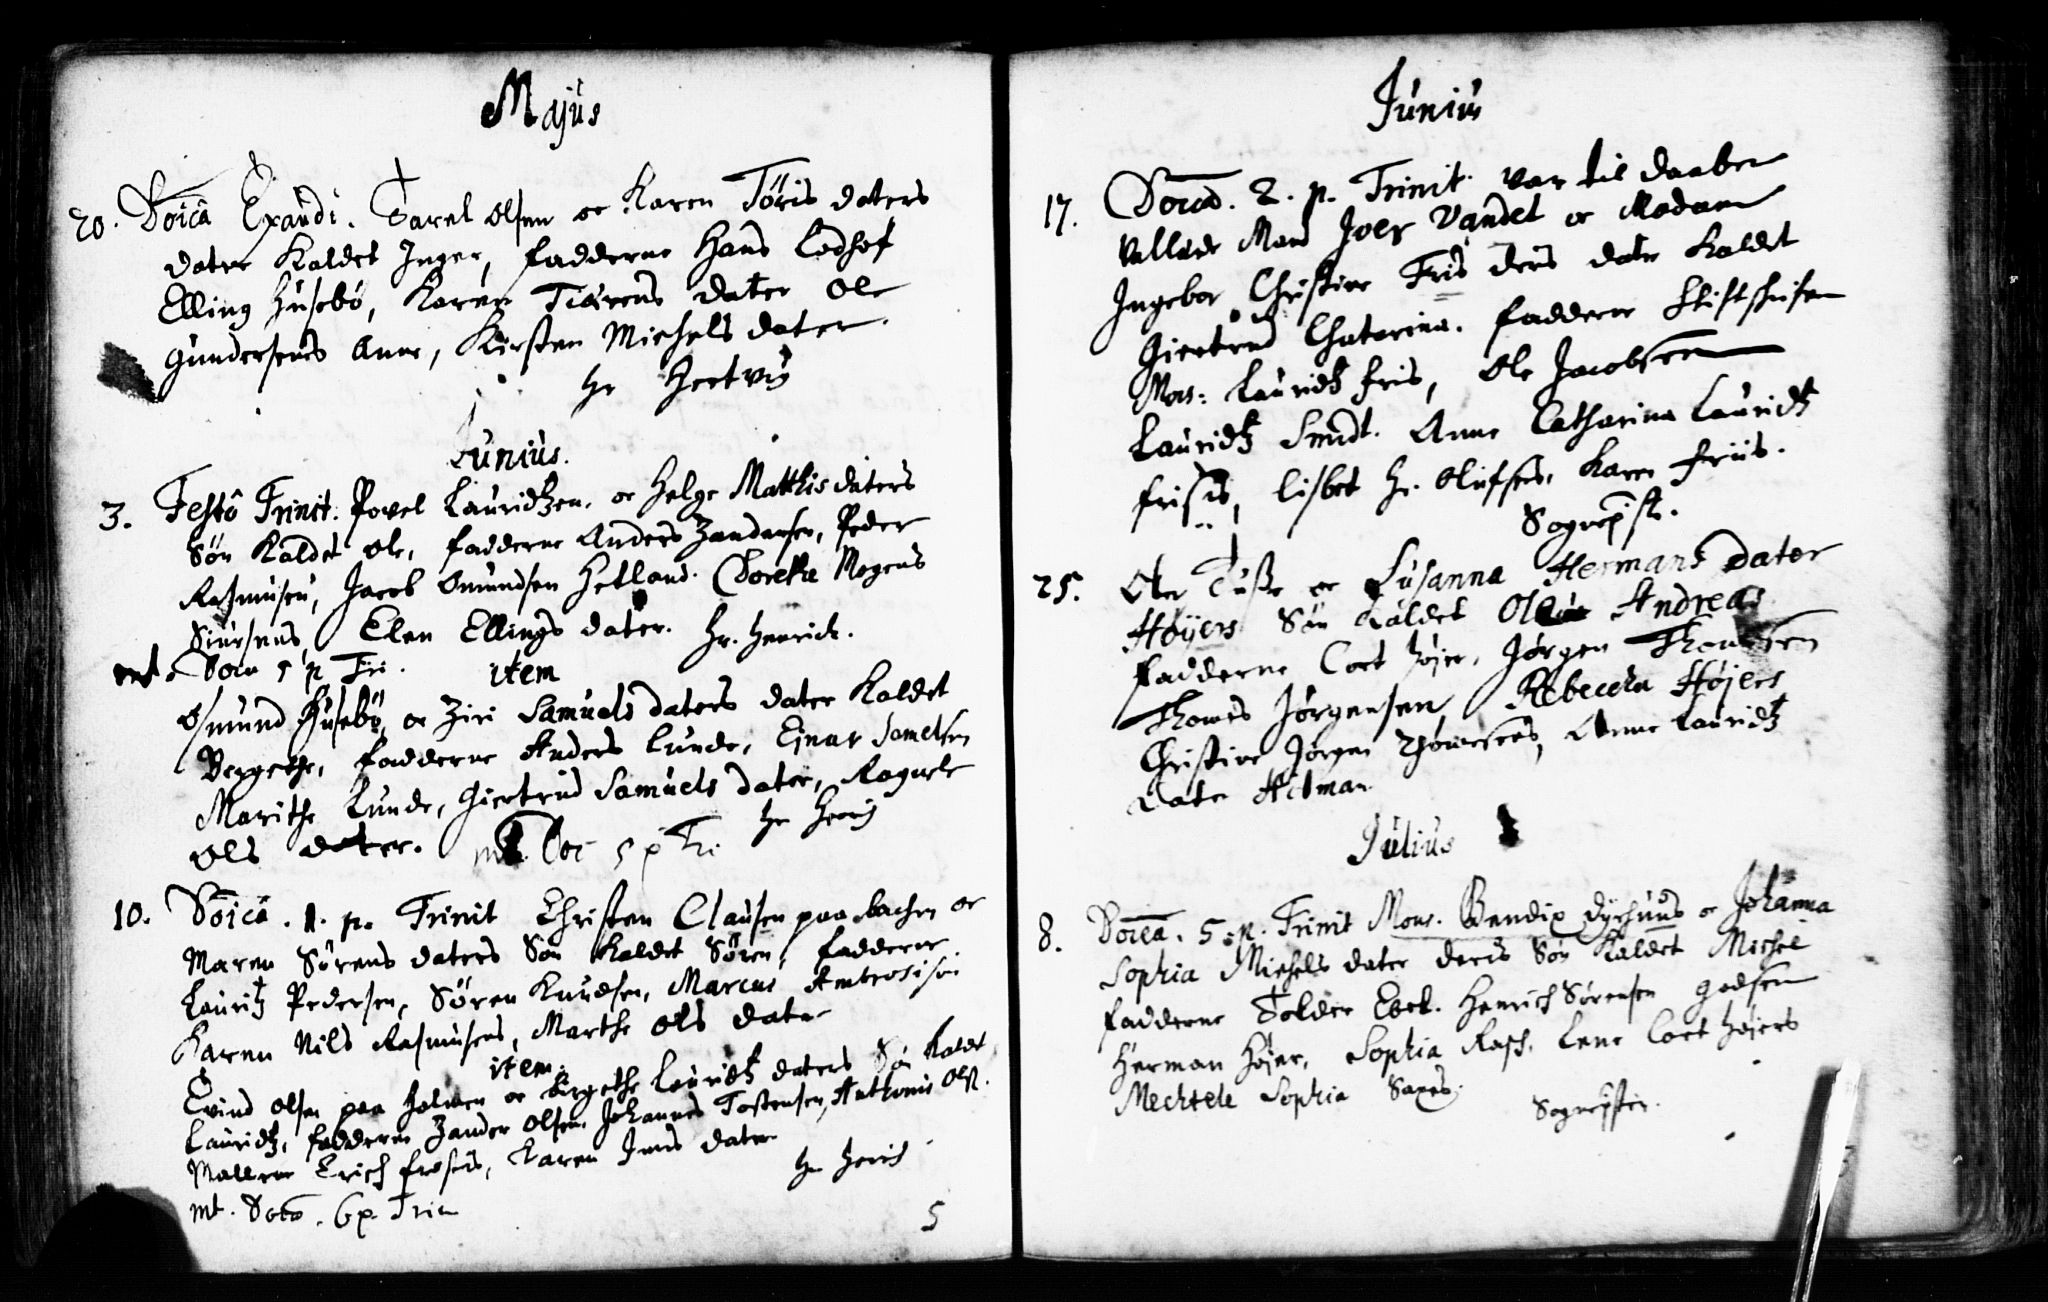 Majus
20. Doicâ Exaudi. Tarel Olsen oc Karen Töris daters
dater Kaldet Inger, fadderne Hans Lodhof
Elling Husebö, Karen Tiörens dater Ole
Gundersens Anne, Kirsten Michels dater.
hr Hertvig
Junius.
3. Festô Trinit. Povel Lauridtzen. oc Helge Matthis daters
Sön Kaldet Ole, fadderne Anders Zandersen, Peder
Rasmusen, Jacob Omundsen Hetland. Dorethe Mogens
Siursens, Elen Ellings dater. Hr. Henrich.
mt. Doca 5 p Tri.
item
Osmund Husebö, oc Ziri Samuels daters dater Kaldet
Bergethe, fadderne Anders Lunde, Ejnar Samelsen
Marithe Lunde, Giertrud Samuels dater, Raguele
Ols dater. hr Henrich
mt. Doc 5 p Tri
10. Doicâ. 1. p. Trinit Christen Clausen paa bachen oc
Maren Sörens daters Sön Kaldet Sören, fadderne
Lauritz Pedersen, Sören Knudsen, Marcus Ambrosison
Karen Nils Rasmusens, Marthe Ols dater
item.
Evind Olsen paa Holmen oc Birgethe Lauridtz daters Sön Kaldet
Lauridtz, fadderne Zander Olsen, Johannes Tostensen, Anthonis Ols.
Mallene Erich frosts, Karen Jens dater
hr Henrich
mt. Doca. 6 p. Trin
5
Junius
17. Doica. 2. p. Trinit. var til daaben
Vellede Mand Joer Vandel oc Madame
Ingebor Christine Friis ders dater Kaldet
Giertrud Chatarina. fadderne Stiftskrifven
Mons: Lauridtz friis, Ole Jacobsen
Lauridtz Smidt. Anne Catharina Lauridtz
friises, lisbet Hr. Olufses, Karen friis.
Sognepstr.
25. Oler Tuße oc Susanna Hermans dater
Höyers Sön Kaldet Oluf Andreas
fadderne Cort höjer, Jörgen Thomesen
Thomes Jörgensen, Rebeccha Höjers
Christine Jörgen Thömesens, Anne Lauridtz
dater Hitman
Julius
8. Doica. 5. p. Trinit Mons. Bendix Dychuus oc Johanna
Sophia Michels dater deris Sön Kaldet Michel
fadderne Tolder Ebel. Henrich Sörensen Godsen
Herman Höjer, Sophia Rasch, Lene Cort Höjers
Mechtele Sophia Saxes.
Sognepster.